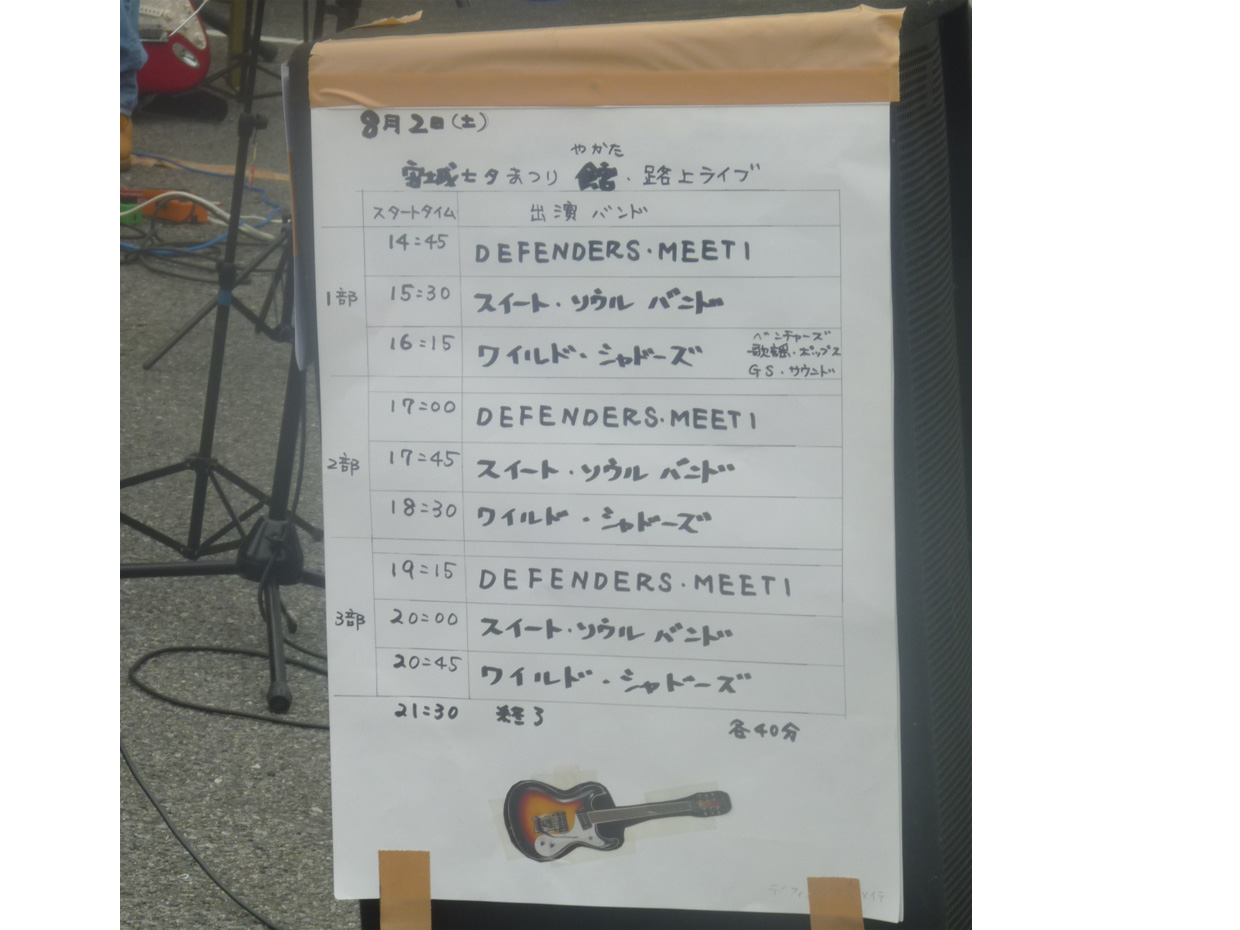 8月2日(土)
やかた
七夕まつり 館・路上ライブ
スタートタイム 出演 バンド
1部
14:45 DEFENDERS・MEET1
15:30 スイート・ソウル バンド
16:15 ワイルド・シャドーズ
ベンチャーズ
歌謡・ポップス
GS・サウンド
2部
17:00 DEFENDERS・MEET1
17:45 スイート・ソウル バンド
18:30 ワイルド・シャドーズ
3部
19:15 DEFENDERS・MEET1
20:00 スイート・ソウル バンド
20:45 ワイルド・シャドーズ
21:30 終了
各40分